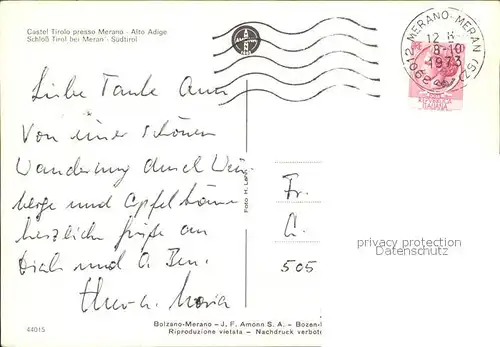 Castel Tirolo presso Merano - Alto Adige
Schloß Tirol bei Meran - Südtirol
39012 MERANO-MERAN (BZ)
8-10
1973
ITALIANA
Liebe Tante Anna
Von einer schönen
Wanderung durch Wein-
berge und Apfelbäume
herzliche Grüße an
Dich und O. Ben.
Theo u. Maria
Fr.
A.
505
Foto H.
privacy protection
Datenschutz
44015
Bolzano-Merano - J. F. Amonn S. A. - Bozen-
Riproduzione vietata - Nachdruck verbot